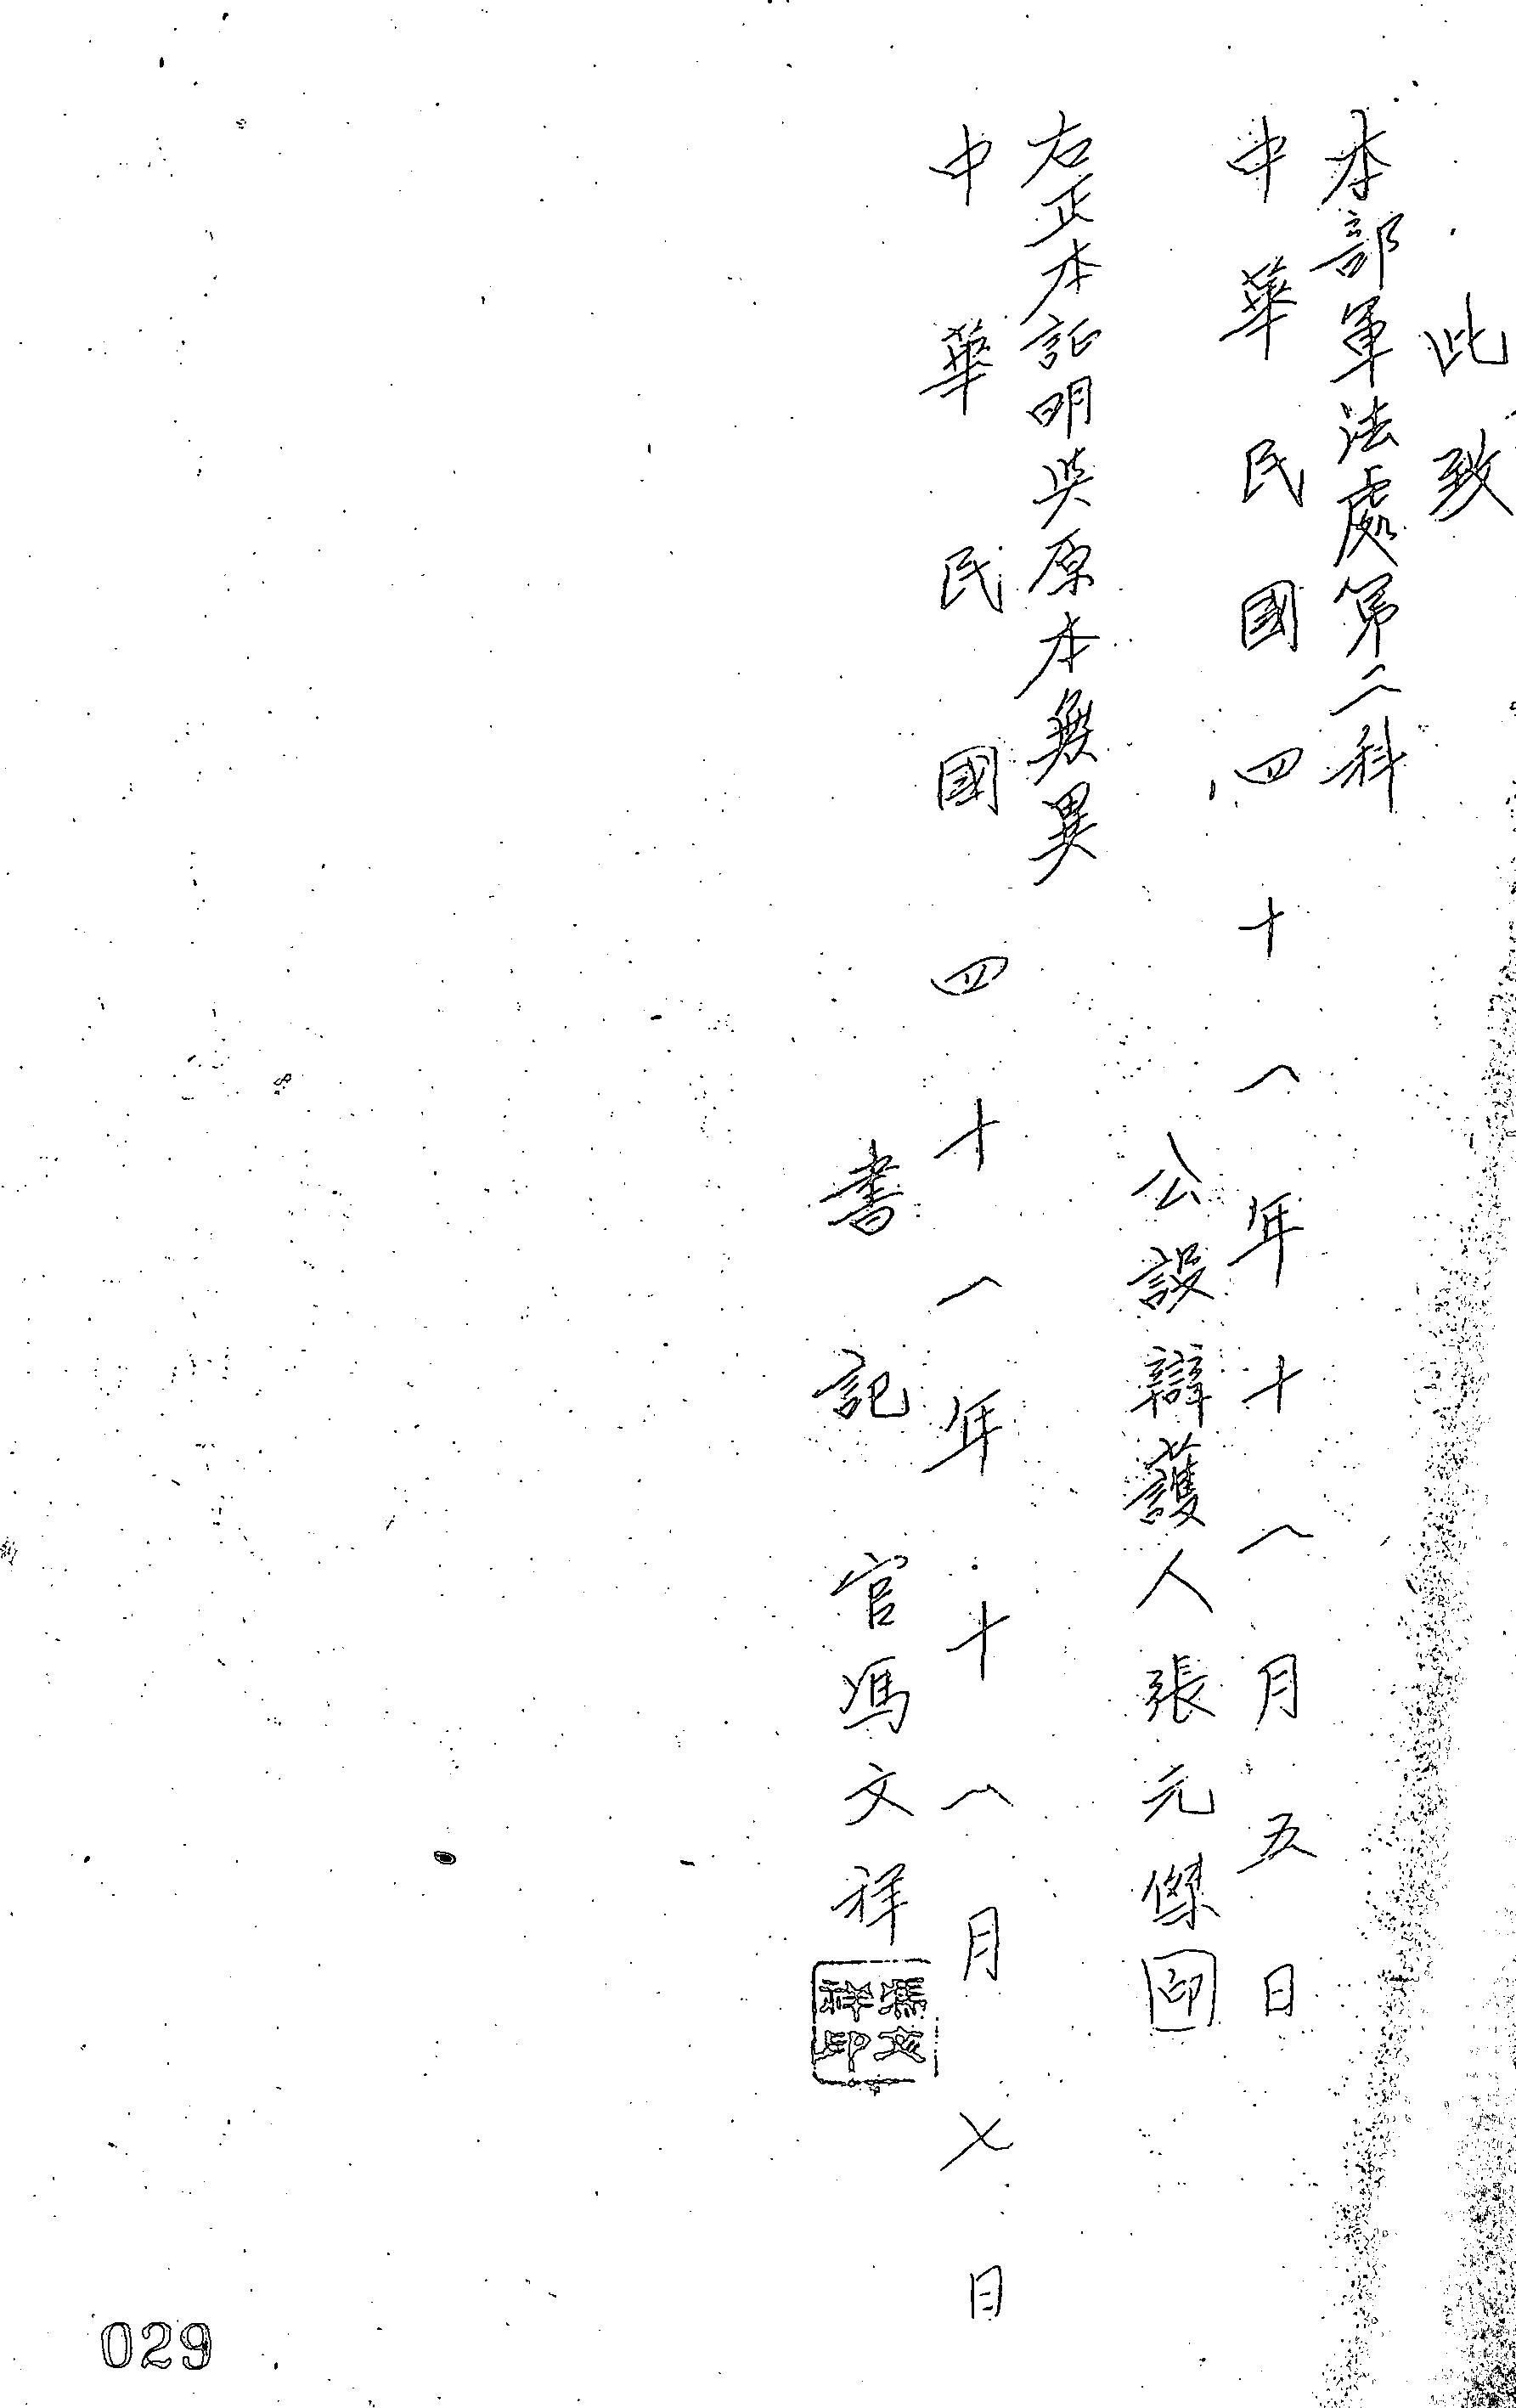 此致
本部軍法處第二科
中華民國四十一年十一月五日
公設辯護人張元傑印
右正本証明與原本無異
中華民國四十一年十一月七日
書記官馮文祥
馮文祥印
029